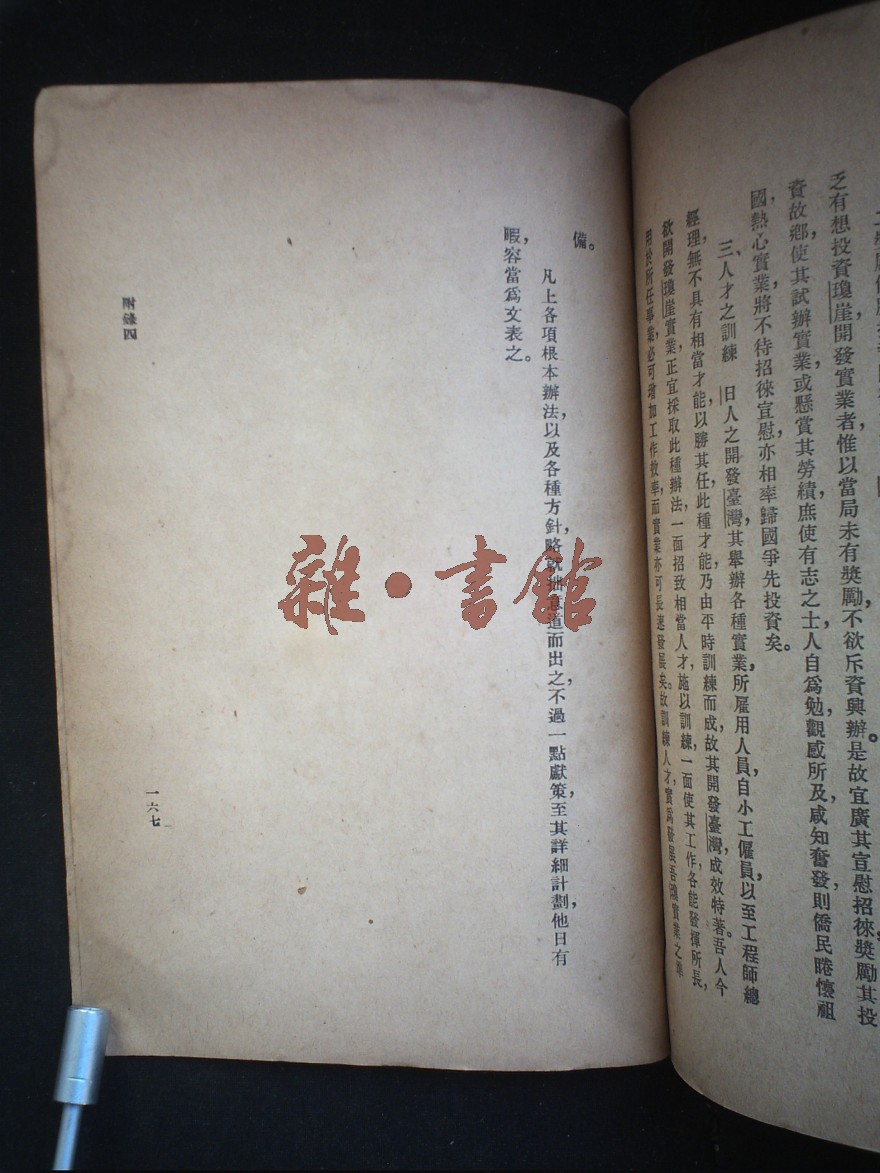 乏有想投資瓊崖開發實業者，惟以當局未有獎勵，不欲斥資興辦。是故宜廣其宣慰招徠，獎勵其投
資故鄉，使其試辦實業，或懸賞其勞績，庶使有志之士，人自爲勉，觀感所及，咸知奮發，則僑民睠懷祖
國，熱心實業，將不待招徠宣慰，亦相率歸國爭先投資矣。
三、人才之訓練　日人之開發臺灣，其舉辦各種實業，所雇用人員，自小工僱員，以至工程師總
經理，無不具有相當才能，以勝其任，此種才能，乃由平時訓練而成，故其開發臺灣，成效特著。吾人今
欲開發瓊崖實業，正宜採取此種辦法，一面招致相當人才，施以訓練，一面使其工作，各能發揮所長，
用於所任事業，必可增加工作效率，而實業亦可長速發展矣。故訓練人才，實爲發展吾瓊實業之準
備。
凡上各項根本辦法，以及各種方針，略就拙意道而出之，不過一點獻策，至其詳細計劃，他日有
暇，容當爲文表之。
附錄四
一六七
雜·書館